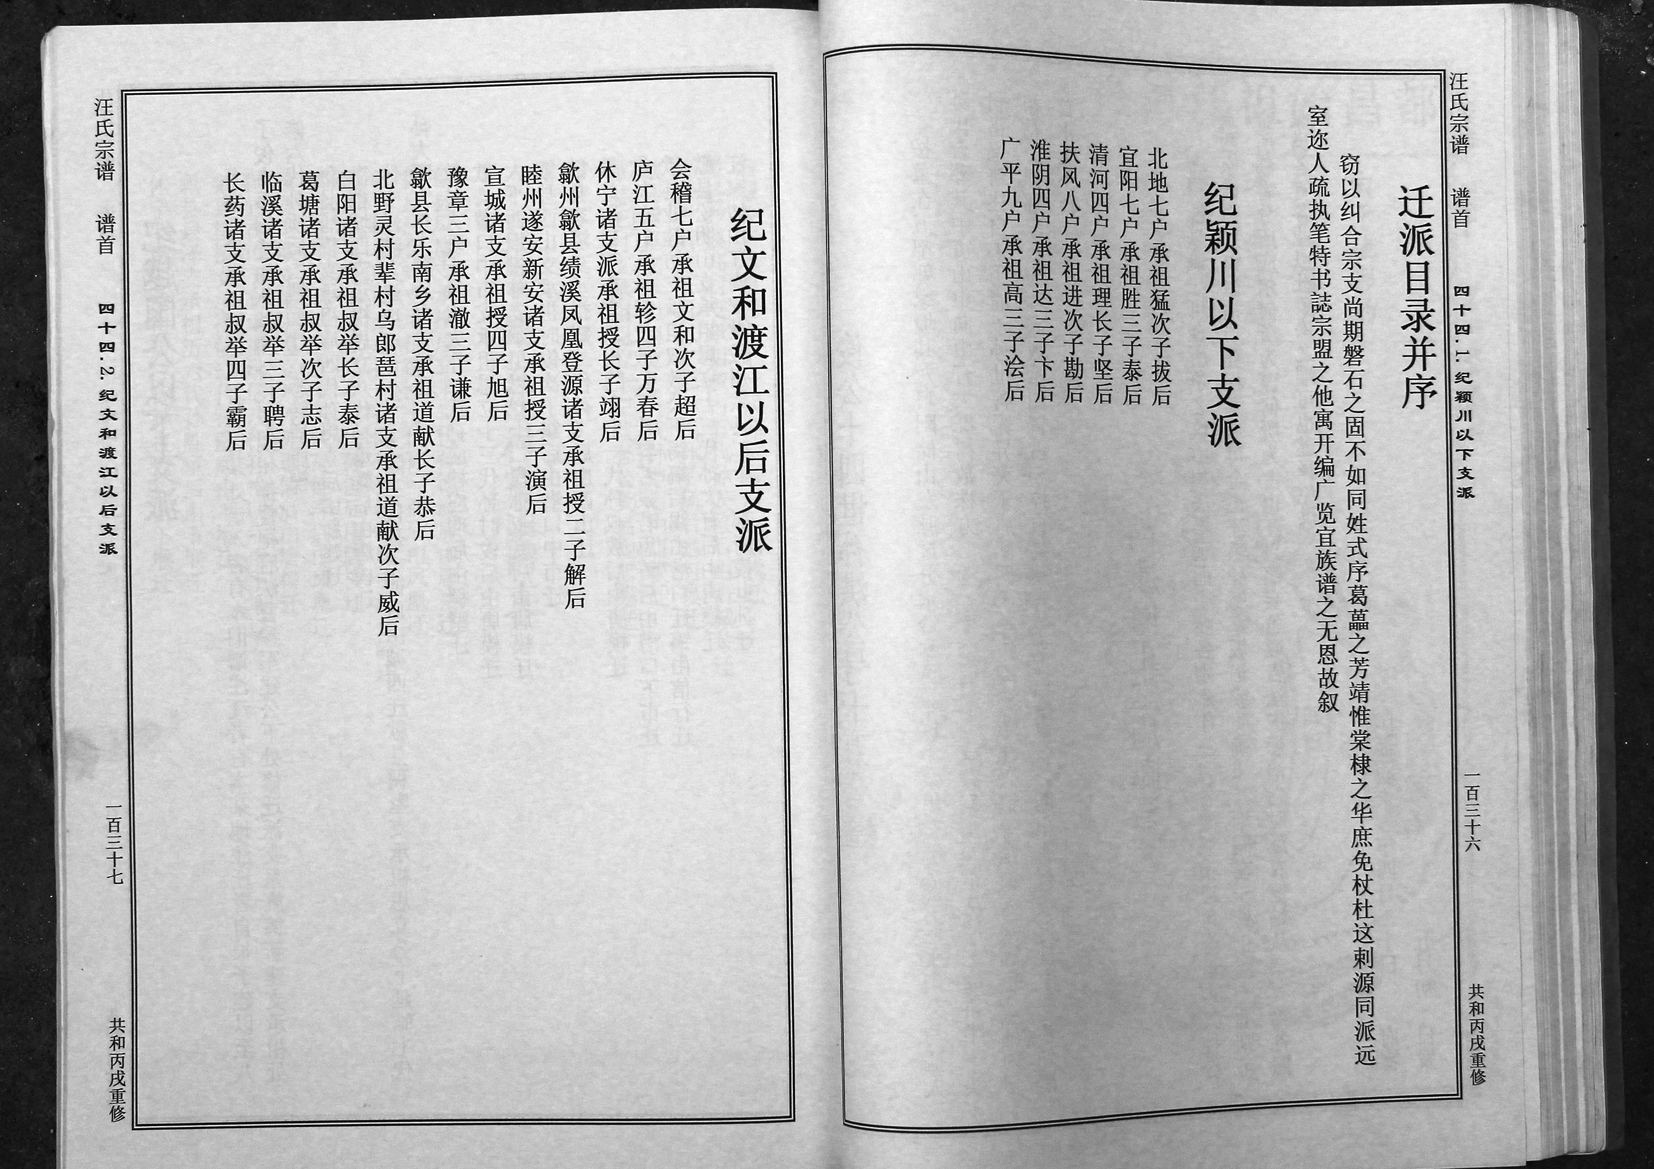 汪氏宗谱 谱首 四十四.1.纪颖川以下支派 一百三十六 共和丙戌重修
迁派目录并序
窃以纠合宗支尚期磐石之固不如同姓式序葛藟之芳靖惟棠棣之华庶免杖杜这刺源同派远
室迩人疏执笔特书誌宗盟之他寓开编广览宜族谱之无恩故叙
纪颖川以下支派
北地七户承祖猛次子拔后
宜阳七户承祖胜三子泰后
清河四户承祖理长子坚后
扶风八户承祖进次子勘后
淮阴四户承祖达三子卞后
广平九户承祖高三子浍后
纪文和渡江以后支派
会稽七户承祖文和次子超后
庐江五户承祖轸四子万春后
休宁诸支派承祖授长子翊后
歙州歙县绩溪凤凰登源诸支承祖授二子解后
睦州遂安新安诸支承祖授三子演后
宣城诸支承祖授四子旭后
豫章三户承祖澈三子谦后
歙县长乐南乡诸支承祖道献长子恭后
北野灵村辈村乌郎琶村诸支承祖道献次子威后
白阳诸支承祖叔举长子泰后
葛塘诸支承祖叔举次子志后
临溪诸支承祖叔举三子聘后
长药诸支承祖叔举四子霸后
汪氏宗谱 谱首 四十四.2.纪文和渡江以后支派 一百三十七 共和丙戌重修